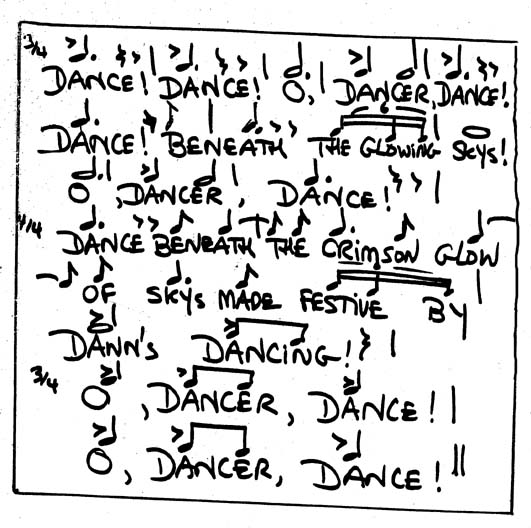 3/4 DANCE! DANCE! O, DANCER, DANCE!
DANCE! BENEATH THE GLOWING SKYS!
O, DANCER, DANCE!
4/4 DANCE BENEATH THE CRIMSON GLOW
OF SKYS MADE FESTIVE BY
DANN'S DANCING!
3/4 O, DANCER, DANCE!
O, DANCER, DANCE!